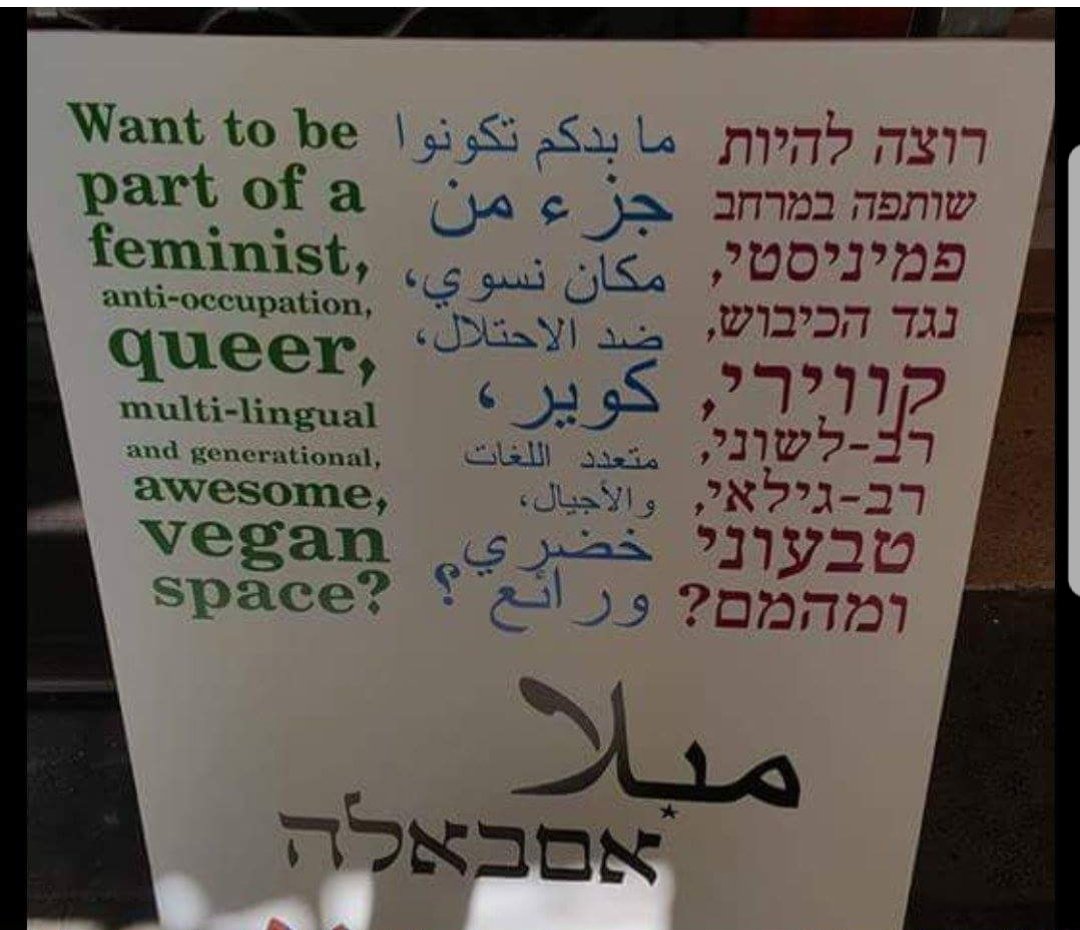 Want to be
part of a
feminist,
anti-occupation,
queer,
multi-lingual
and generational,
awesome,
vegan
space?
ما بدكم تكونوا
جزء من
مكان نسوي،
ضد الاحتلال،
كوير،
متعدد اللغات
والأجيال،
خضري
ورائع؟
רוצה להיות
שותפה במרחב
פמיניסטי,
נגד הכיבוש,
קווירי,
רב-לשוני,
רב-גילאי,
טבעוני
ומהמם?
מבלا
אםבאלה